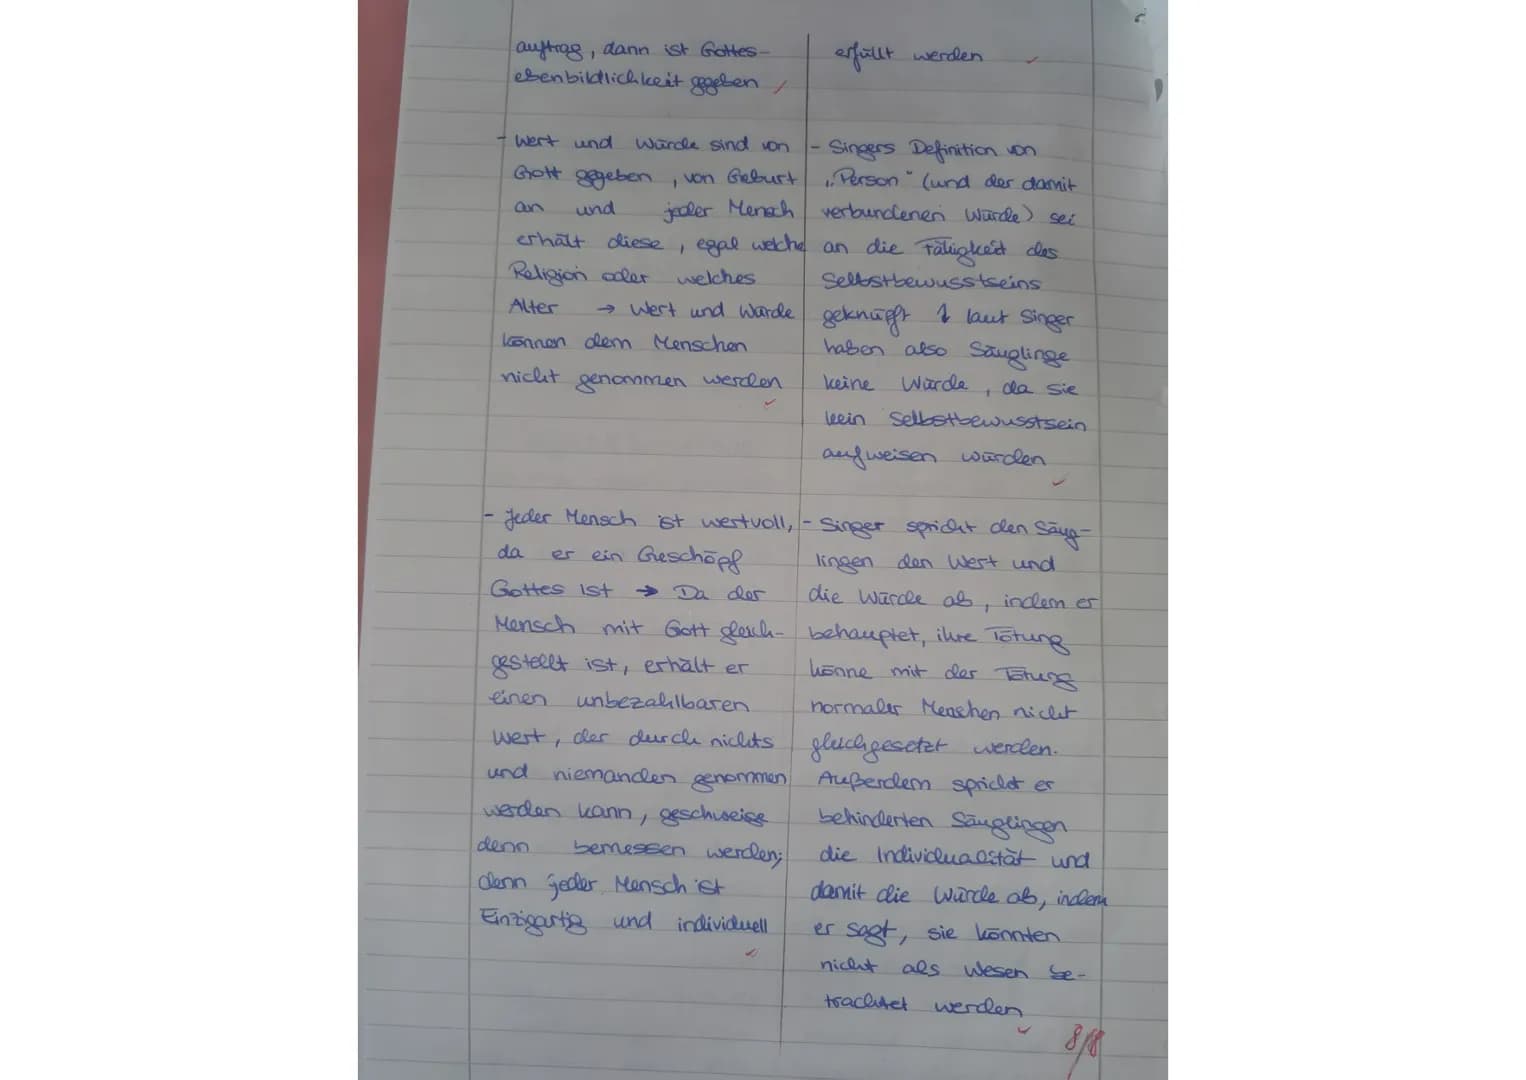 auftrag, dann ist Gottes-
ebenbildlichkeit gegeben
- Wert und Würde sind von
Gott gegeben, von Geburt
an und jeder Mensch
erhält diese, egal welche
Religion oder welches
Alter → Wert und Würde
können dem Menschen
nicht genommen werden
- Jeder Mensch ist wertvoll,
da er ein Geschöpf
Gottes ist → Da der
Mensch mit Gott gleich-
gestellt ist, erhält er
einen unbezahlbaren
Wert, der durch nichts
und niemanden genommen
werden kann, geschweige
denn bemessen werden;
denn jeder Mensch ist
Einzigartig und individuell
erfüllt werden
- Singers Definition von
„Person" (und der damit
verbundenen Würde) sei
an die Fähigkeit des
Selbstbewusstseins
geknüpft laut Singer
haben also Säuglinge
keine Würde, da sie
kein Selbstbewusstsein
aufweisen würden
- Singer spricht den Säug-
lingen den Wert und
die Würde ab, indem er
behauptet, ihre Tötung
könne mit der Tötung
normaler Menschen nicht
gleichgesetzt werden.
Außerdem spricht er
behinderten Säuglingen
die Individualität und
damit die Würde ab, indem
er sagt, sie könnten
nicht als Wesen be-
trachtet werden
8/8